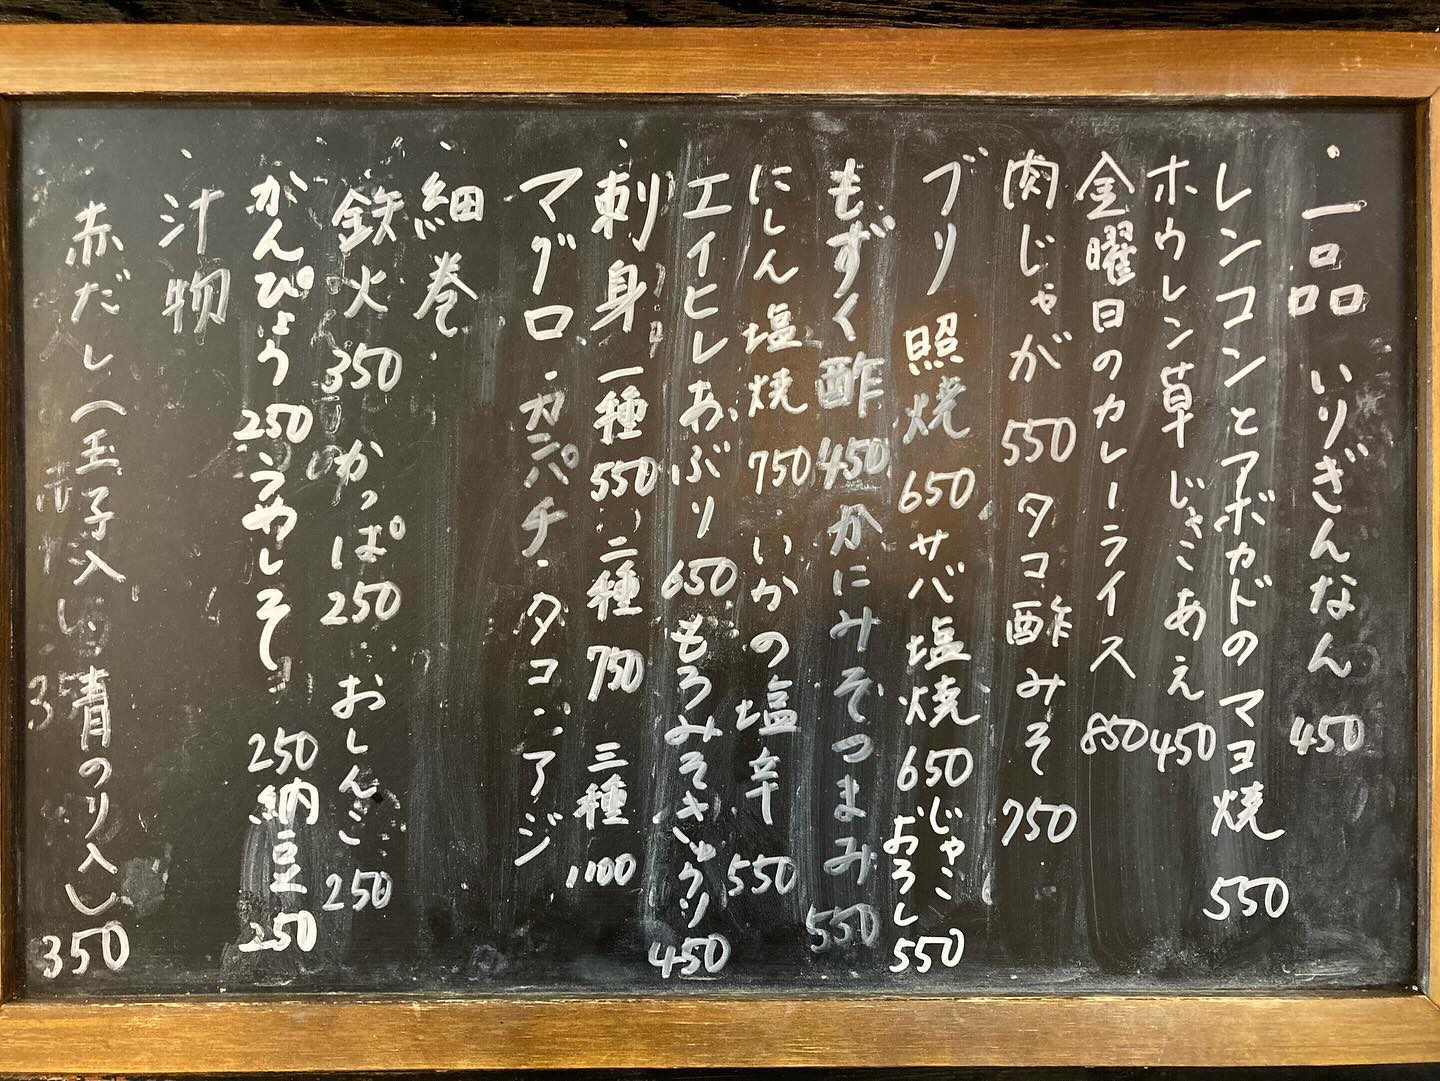 ・一品 いりぎんなん 450
レンコンとアボカドのマヨ焼 550
ホウレン草じゃこあえ 450
金曜日のカレーライス 850
肉じゃが 550 タコ酢みそ 750
ブリ照焼 650 サバ塩焼 650 じゃこおろし 550
もずく酢 450 かにみそつまみ 550
にしん塩焼 750・いかの塩辛 550
エイヒレあぶり 650 もろみそきゅうり 450
・刺身 一種 550 二種 750 三種 1100
マグロ・カンパチ・タコ・アジ
・細巻
鉄火 350 かっぱ 250 おしんこ 250
かんぴょう 250 うめしそ 250 納豆 250
・汁物
赤だし(玉子入い 青のり入) 350